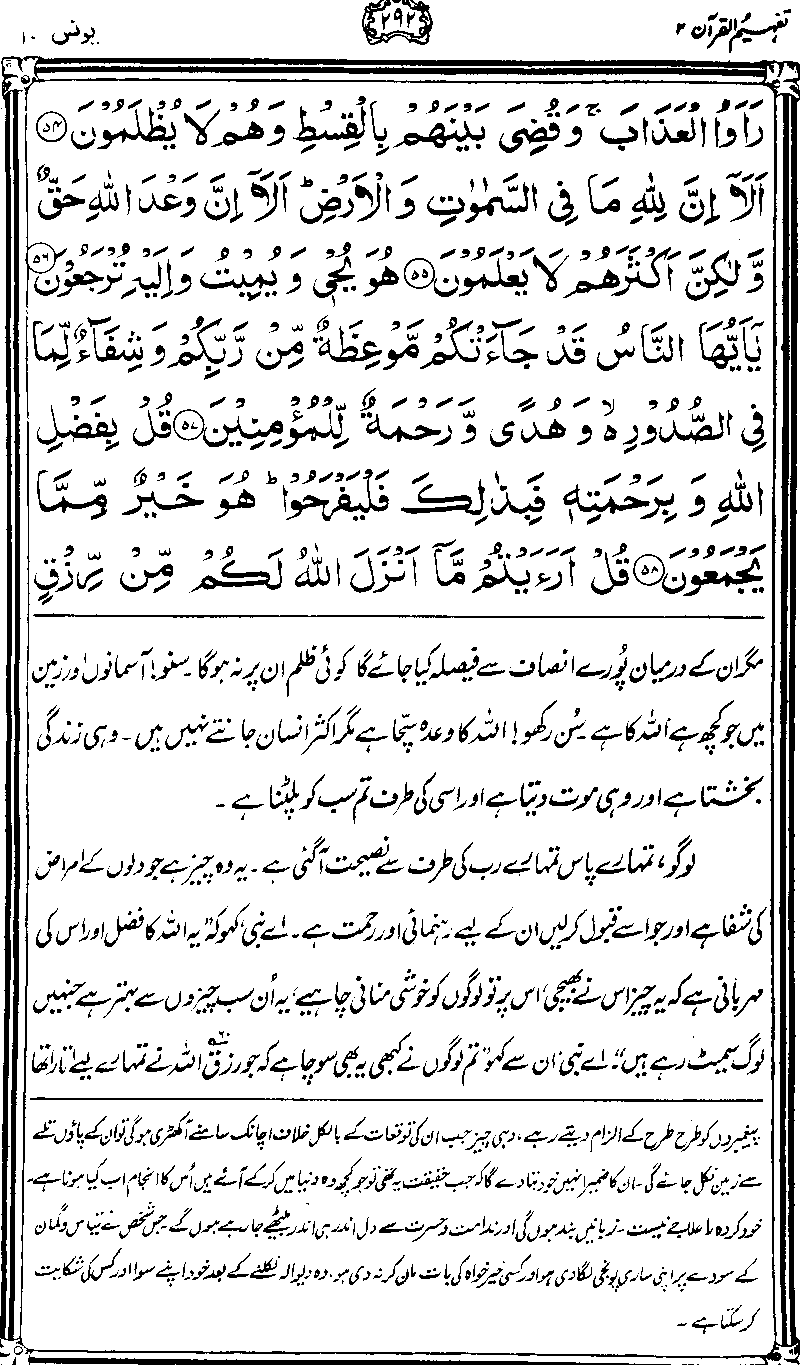 تفہیم القرآن ۲
۲۹۲
یونس ۱۰
رَاَوُا الْعَذَابَ ۚ وَقُضِیَ بَیْنَهُمْ بِالْقِسْطِ وَهُمْ لَا یُظْلَمُوْنَ ﴿۵۴﴾
اَلَاۤ اِنَّ لِلّٰهِ مَا فِی السَّمٰوٰتِ وَ الْاَرْضِ ؕ اَلَاۤ اِنَّ وَعْدَ اللّٰهِ حَقٌّ
وَّلٰكِنَّ اَكْثَرَهُمْ لَا یَعْلَمُوْنَ ﴿۵۵﴾ هُوَ یُحْیٖ وَ یُمِیْتُ وَ اِلَیْهِ تُرْجَعُوْنَ ﴿۵۶﴾
یٰۤاَیُّهَا النَّاسُ قَدْ جَآءَتْكُمْ مَّوْعِظَةٌ مِّنْ رَّبِّكُمْ وَ شِفَآءٌ لِّمَا
فِی الصُّدُوْرِ ۙ۬ وَ هُدًی وَّ رَحْمَةٌ لِّلْمُؤْمِنِیْنَ ﴿۵۷﴾ قُلْ بِفَضْلِ
اللّٰهِ وَ بِرَحْمَتِهٖ فَبِذٰلِكَ فَلْیَفْرَحُوْا ؕ هُوَ خَیْرٌ مِّمَّا
یَجْمَعُوْنَ ﴿۵۸﴾ قُلْ اَرَءَیْتُمْ مَّاۤ اَنْزَلَ اللّٰهُ لَكُمْ مِّنْ رِّزْقٍ
مگر ان کے درمیان پُورے انصاف سے فیصلہ کیا جائے گا کوئی ظلم ان پر نہ ہو گا۔ سنو! آسمانوں اور زمین
میں جو کچھ ہے اللہ کا ہے۔ سُن رکھو! اللہ کا وعدہ سچّا ہے مگر اکثر انسان جانتے نہیں ہیں۔ وہی زندگی
بخشتا ہے اور وہی موت دیتا ہے اور اسی کی طرف تم سب کو پلٹنا ہے۔
لوگو، تمہارے پاس تمہارے رب کی طرف سے نصیحت آ گئی ہے۔ یہ وہ چیز ہے جو دلوں کے امراض
کی شفا ہے اور جو اسے قبول کر لیں ان کے لیے رہنمائی اور رحمت ہے۔ اے نبی، کہو کہ "یہ اللہ کا فضل اور اس کی
مہربانی ہے کہ یہ چیز اس نے بھیجی، اس پر تو لوگوں کو خوشی منانی چاہیے، یہ اُن سب چیزوں سے بہتر ہے جنہیں
لوگ سمیٹ رہے ہیں"۔ اے نبی، ان سے کہو "تم لوگوں نے کبھی یہ بھی سوچا ہے کہ جو رزق۶۰ اللہ نے تمہارے لیے اُتارا تھا
پیغمبروں کو طرح طرح کے الزام دیتے رہے، وہی چیز جب ان کی توقعات کے بالکل خلاف اچانک سامنے آ کھڑی ہوگی تو ان کے پاؤں تلے
سے زمین نکل جائے گی۔ ان کا ضمیر انہیں خود بتا دے گا کہ جب حقیقت یہ تھی تو جو کچھ وہ دنیا میں کر کے آئے ہیں اُس کا انجام اب کیا ہونا ہے۔
خود کردہ را علاجے نیست۔ زبانیں بند ہوں گی اور ندامت و حسرت سے دل اندر ہی اندر بیٹھے جا رہے ہوں گے۔ جس شخص نے قیاس و گمان
کے سودے پر اپنی ساری پونجی لگا دی ہو اور کسی خیر خواہ کی بات مان کر نہ دی ہو، وہ دیوالہ نکلنے کے بعد خود اپنے سوا اور کس کی شکایت
کر سکتا ہے۔